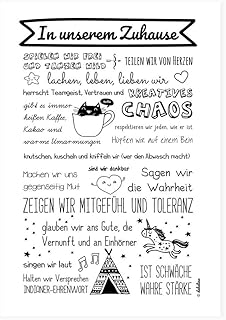 In unserem Zuhause
SPIELEN WIR FREI
UND TANZEN WILD
TEILEN WIR VON HERZEN
lachen, leben, lieben wir
herrscht Teamgeist, Vertrauen und
KREATIVES
CHAOS
gibt es immer
heißen Kaffee,
Kakao und
warme Umarmungen
respektieren wir jeden, wie er ist
Hüpfen wir auf einem Bein
knutschen, kuscheln und kniffeln wir (wer den Abwasch macht)
Machen wir uns
gegenseitig Mut
sind wir dankbar
Sagen wir
die Wahrheit
ZEIGEN WIR MITGEFÜHL UND TOLERANZ
glauben wir ans Gute, die
Vernunft und an Einhörner
singen wir laut
Halten wir Versprechen
INDIANER-EHRENWORT
IST SCHWÄCHE
WAHRE STÄRKE